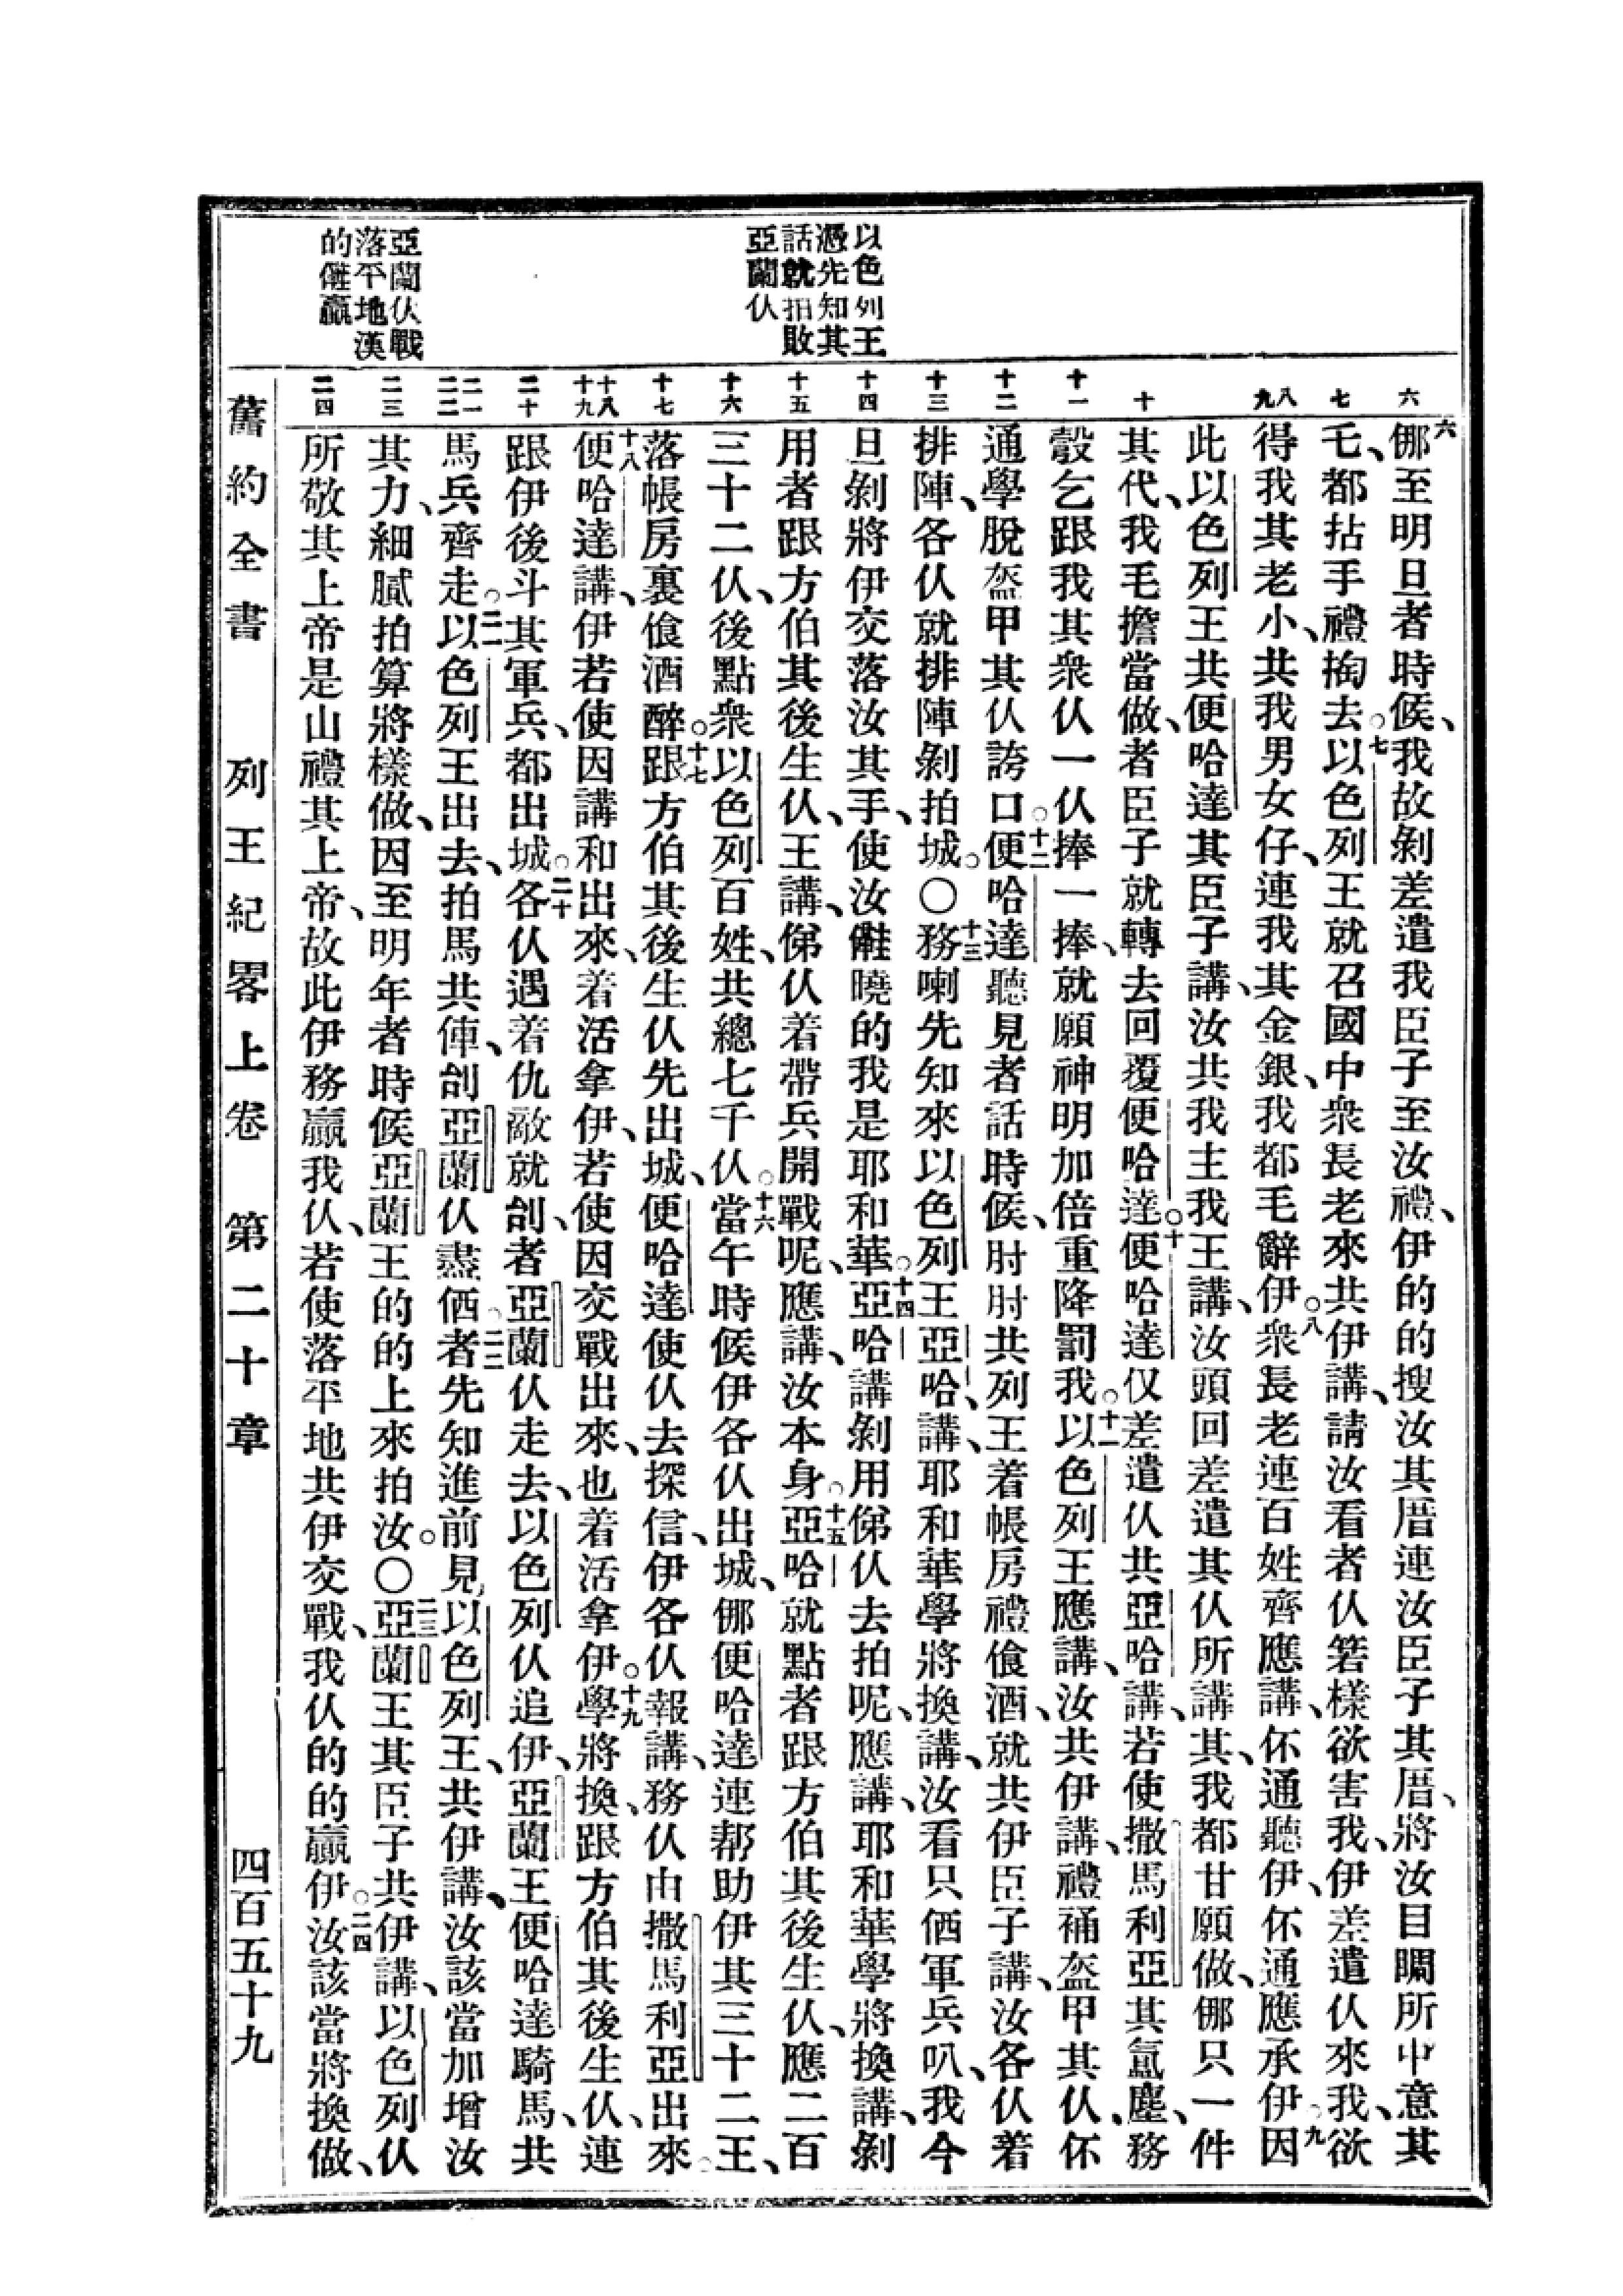 以色列王
憑先知其
話就拍敗
亞蘭仈
亞蘭仈戰
落平地漢
的㑚贏
六
七
八
九
十
十一
十二
十三
十四
十五
十六
十七
十八
十九
二十
二一
二二
二三
二四
六㑚至明旦者時候、我故剝差遣我臣子至汝禮、伊的的搜汝其厝連汝臣子其厝、將汝目瞯所中意其
乇、都拈手禮掏去。七以色列王就召國中衆長老來共伊講、請汝看者仈箬樣欲害我、伊差遣仈來我、欲
得我其老小、共我男女仔、連我其金銀、我都毛辭伊。八衆長老連百姓齊應講、伓通聽伊、伓通應承伊。九因
此以色列王共便哈達其臣子講、汝共我主我王講、汝頭回差遣其仈所講其、我都甘願做、㑚只一件
其代、我毛擔當做、者臣子就轉去回覆便哈達。十便哈達仅差遣仈共亞哈講、若使撒馬利亞其氲塵、務
彀乞跟我其衆仈一仈捧一捧、就願神明加倍重降罰我。十一以色列王應講、汝共伊講、禮補盔甲其仈、伓
通學脫盔甲其仈誇口。十二便哈達聽見者話時候、肘肘共列王着帳房禮飡酒、就共伊臣子講、汝各仈着
排陣、各仈就排陣剝拍城。〇十三務喇先知來以色列王亞哈、講、耶和華學將換講、汝看只㐁軍兵叭、我今
旦剝將伊交落汝其手、使汝㑚曉的我是耶和華。十四亞哈講剝用俤仈去拍呢、應講、耶和華學將換講、剝
用者跟方伯其後生仈、王講、俤仈着帶兵開戰呢、應講、汝本身。十五亞哈就點者跟方伯其後生仈、應二百
三十二仈、後點衆以色列百姓、共總七千仈。十六當午時候伊各仈出城、㑚便哈達連帮助伊其三十二王、
落帳房裏飡酒醉。十七跟方伯其後生仈先出城、便哈達使仈去探信、伊各仈報講、務仈由撒馬利亞出來。
十八便哈達講、伊若使因講和出來、着活拿伊、若使因交戰出來、也着活拿伊。十九學將換、跟方伯其後生仈、連
跟伊後斗其軍兵、都出城。二十各仈遇着仇敵就刣、者亞蘭仈走去、以色列仈追伊、亞蘭王便哈達騎馬、共
馬兵齊走。二一以色列王出去、拍馬共俥、刣亞蘭仈盡㐁。二二者先知進前見以色列王、共伊講、汝該當加增汝
其力、細膩拍算將樣做、因至明年者時候亞蘭王的的上來拍汝。〇二三亞蘭王其臣子共伊講、以色列仈
所敬其上帝是山禮其上帝、故此伊務贏我仈、若使落平地共伊交戰、我仈的的贏伊。二四汝該當將換做、
舊約全書 列王紀畧上卷 第二十章 四百五十九